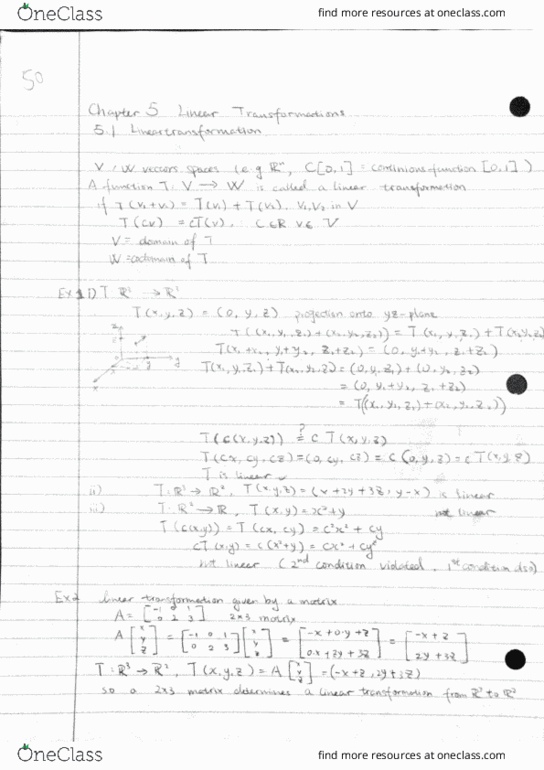 OneClass
find more resources at oneclass.com
50
Chapter 5 Linear Transformations
5.1 Linear transformation
V, W vectors spaces (e.g ℝⁿ, C[0,1] = continious function [0,1])
A function T: V → W is called a linear transformation
if T(v₁+v₂) = T(v₁) + T(v₂), v₁,v₂ in V
T(cv) = cT(v), c∈ℝ v∈V
V = domain of T
W = codomain of T
Ex 1 i) T ℝ³ → ℝ³
T(x,y,z) = (0, y, z) projection onto yz-plane
T((x₁,y₁,z₁)+(x₂,y₂,z₂)) = T(x₁,y₁,z₁) + T(x₂,y₂,z₂)
T(x₁+x₂, y₁+y₂, z₁+z₂) = (0, y₁+y₂, z₁+z₂)
T(x₁,y₁,z₁)+T(x₂,y₂,z₂) = (0,y₁,z₁)+(0,y₂,z₂)
= (0, y₁+y₂, z₁+z₂)
= T((x₁,y₁,z₁)+(x₂,y₂,z₂))
z
y
x
T(c(x,y,z)) ?= c T(x,y,z)
T(cx, cy, cz) = (0, cy, cz) = c(0,y,z) = cT(x,y,z)
T is linear ✓
ii) T: ℝ³ → ℝ², T(x,y,z) = (x+2y+3z, y-x) is linear
iii) T: ℝ² → ℝ, T(x,y) = x²+y not linear
T(c(x,y)) = T(cx, cy) = c²x² + cy
cT(x,y) = c(x²+y) = cx² + cy
not linear (2nd condition violated, 1st condition also)
Ex 2 linear transformation given by a matrix
A = [-1 0 1; 0 2 3] 2x3 matrix
A [x; y; z] = [-1 0 1; 0 2 3] [x; y; z] = [-x+0·y+z; 0·x+2y+3z] = [-x+z; 2y+3z]
T: ℝ³ → ℝ², T(x,y,z) = A [x; y; z] = (-x+z, 2y+3z)
so a 2x3 matrix determines a linear transformation from ℝ³ to ℝ²
OneClass
find more resources at oneclass.com